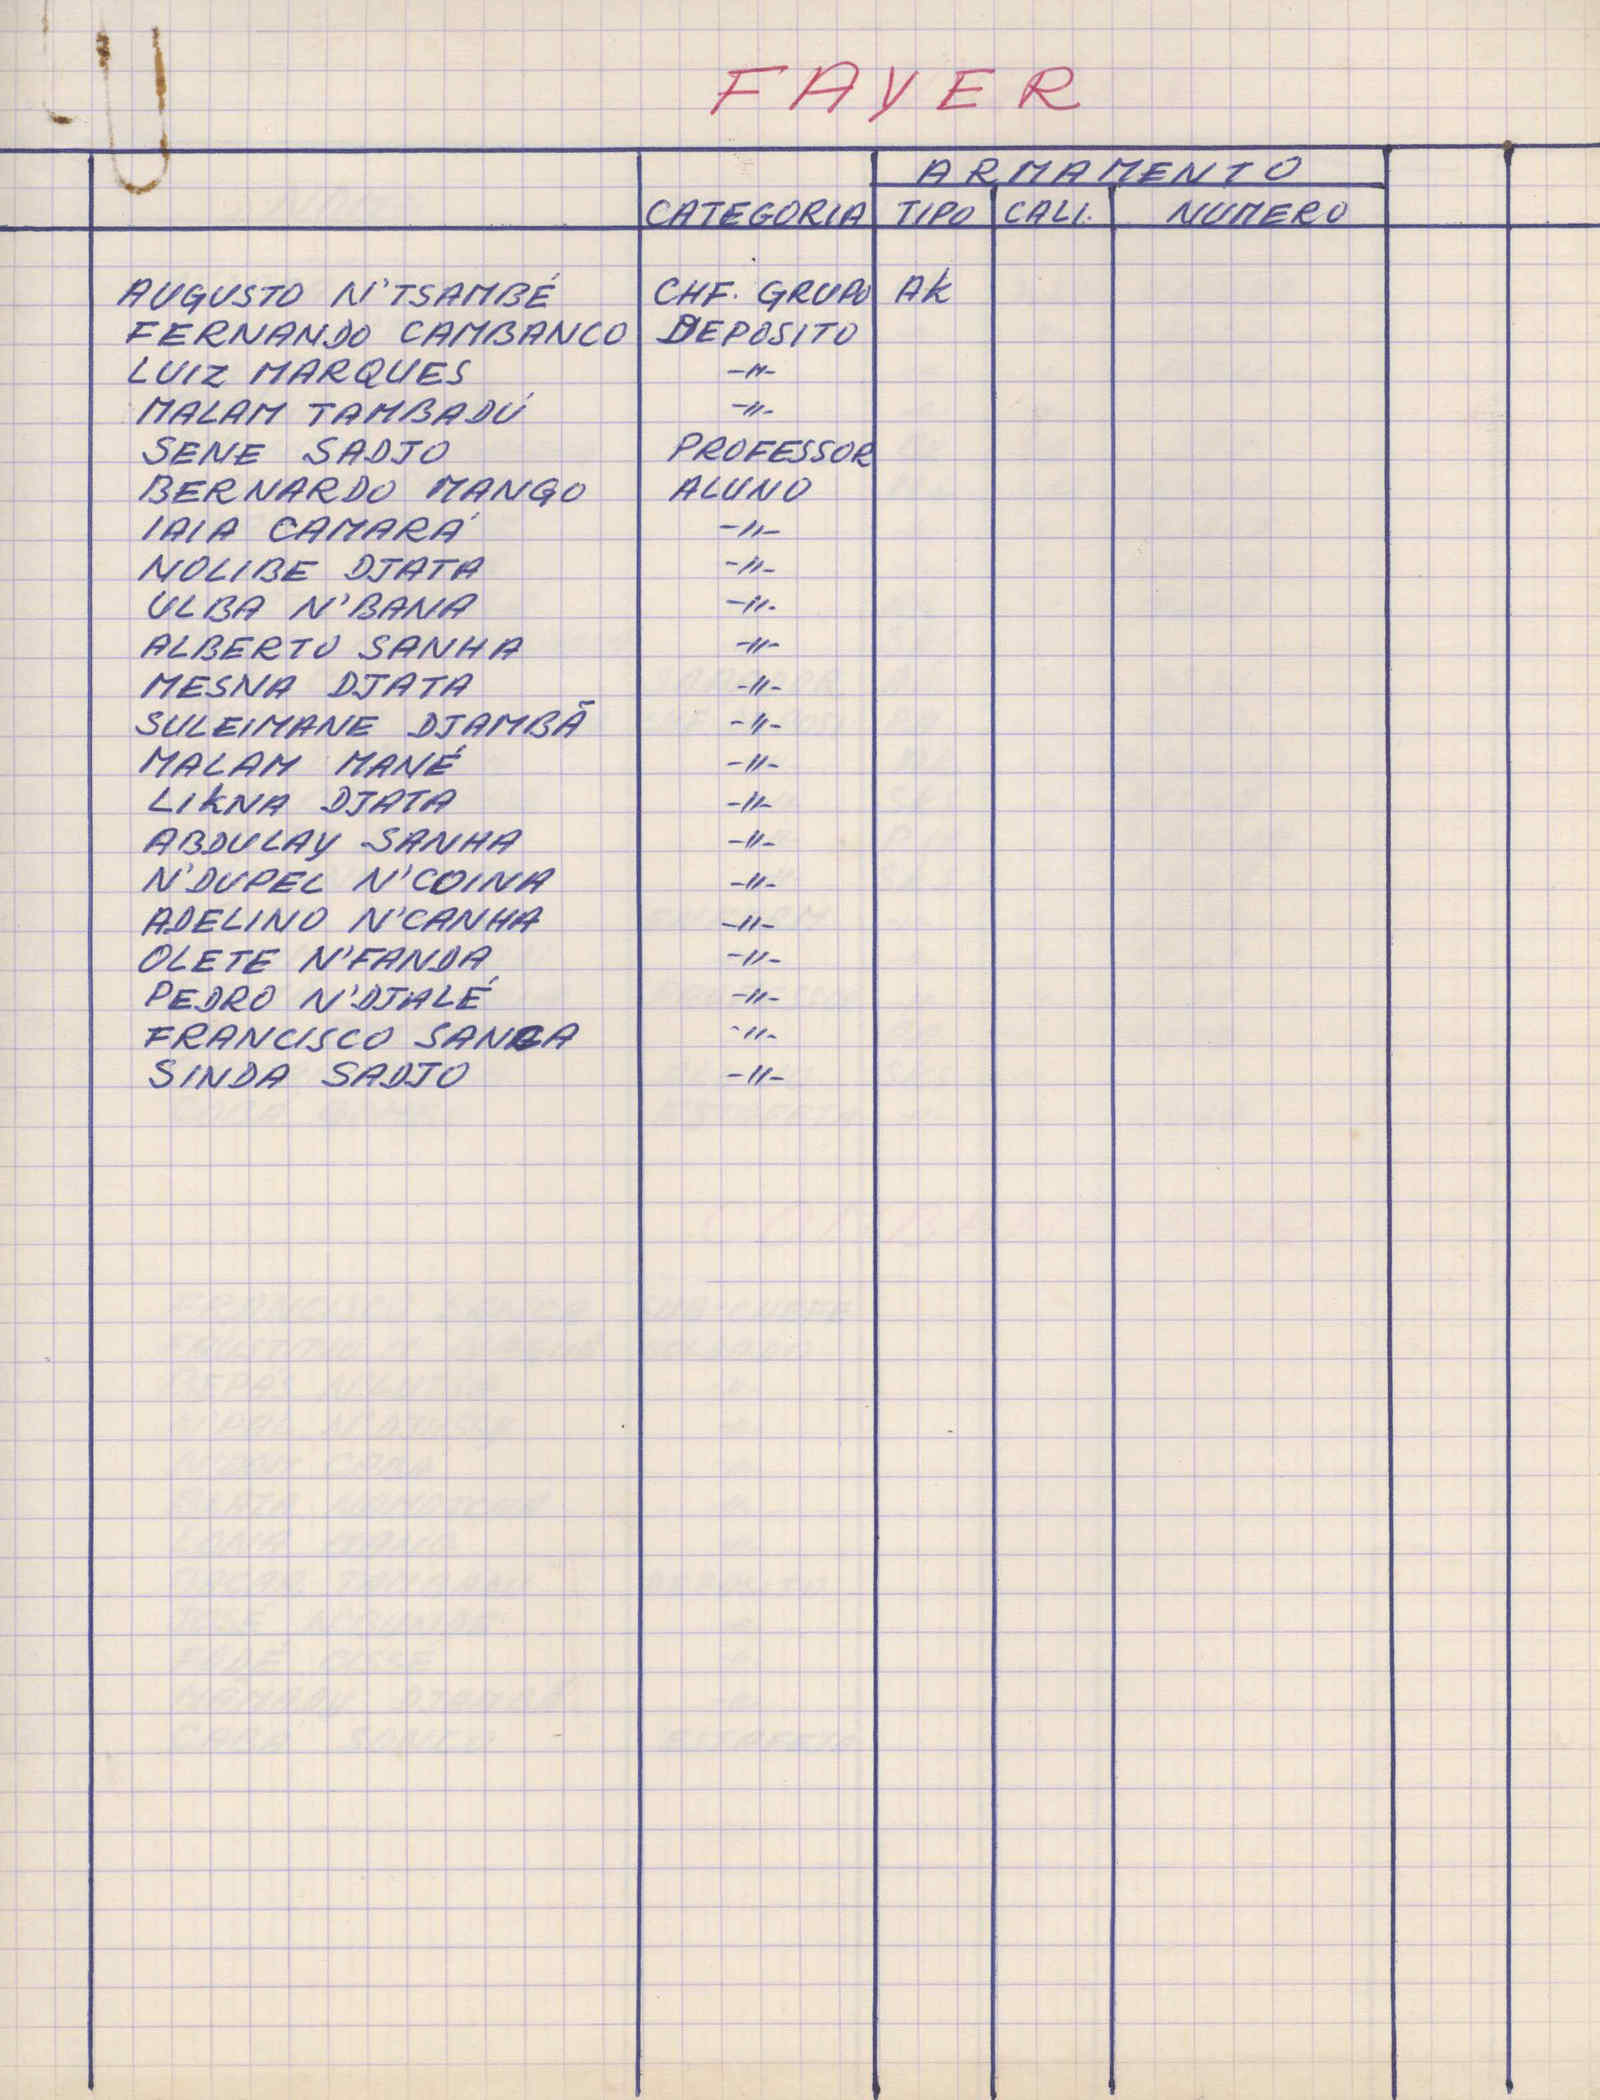 FAYER
ARMAMENTO
CATEGORIA TIPO CALI. NUMERO
AUGUSTO N'TSAMBÉ CHF. GRUPO AK
FERNANDO CAMBANCO DEPOSITO
LUIZ MARQUES -"-
MALAM TAMBADÚ -"-
SENE SADJO PROFESSOR
BERNARDO MANGO ALUNO
IAIA CAMARÁ -"-
NOLIBE DJATA -"-
ULBA N'BANA -"-
ALBERTO SANHA -"-
MESNA DJATA -"-
SULEIMANE DJAMBÃ -"-
MALAM MANÉ -"-
LIKNA DJATA -"-
ABDULAY SANHA -"-
N'DUPEL N'COINA -"-
ADELINO N'CANHA -"-
OLETE N'FANDA -"-
PEDRO N'DJALÉ -"-
FRANCISCO -"-
SINDA SADJO -"-